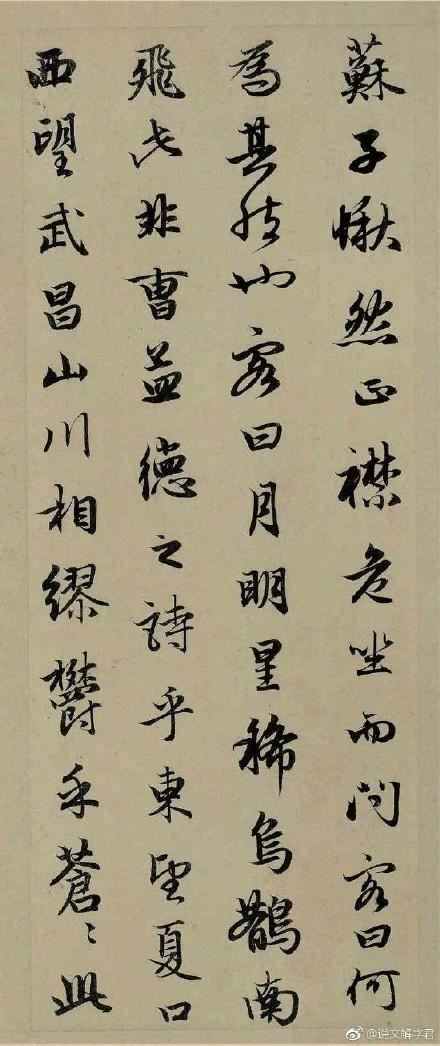 蘇子愀然正襟危坐而問客曰何
為其然也客曰月明星稀烏鵲南
飛此非曹孟德之詩乎東望夏口
西望武昌山川相繆鬱乎蒼〻此
@说文解字君